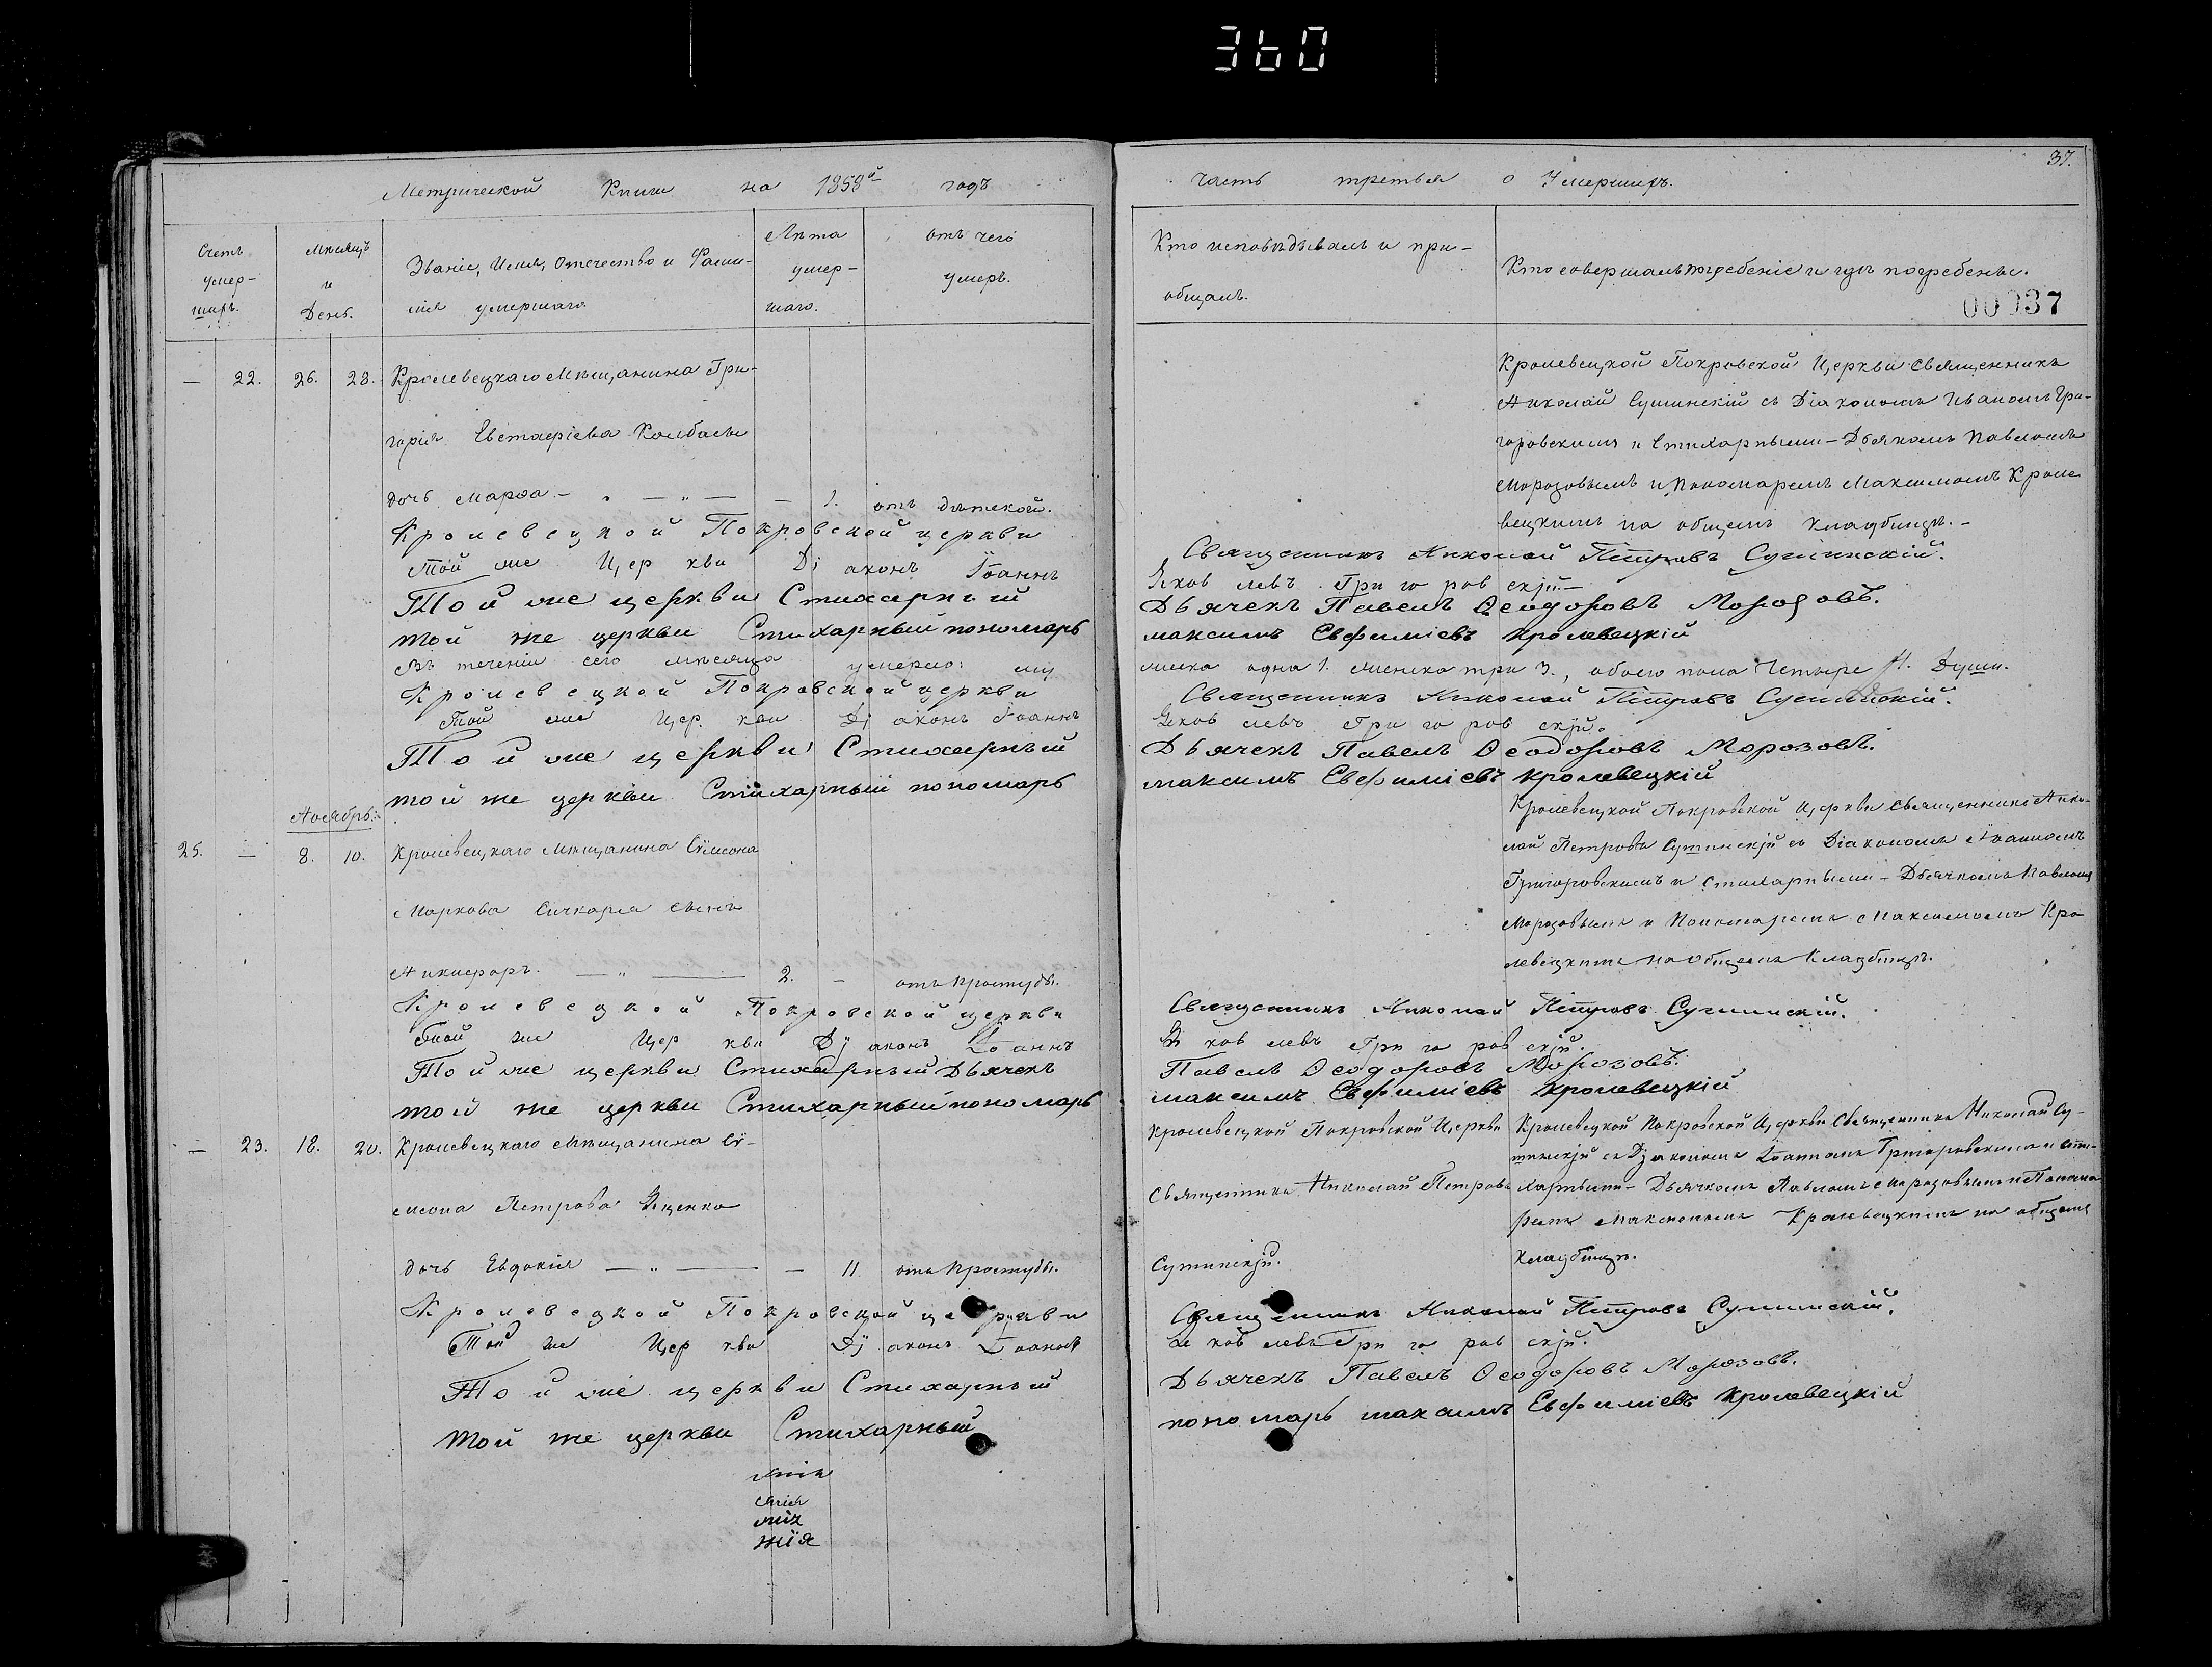 360
37.
Метрической Книги на 1858й годъ
Счетъ умер-шихъ.
Мѣсяцъ и День.
Званіе, Имя, Отечество и Фами-
лія умершаго.
Лѣта умер-шаго.
отъ чего умеръ.
— 22. 26. 28. Кролевецкаго Мѣщанина Гри-
горія Евстафіева Колбасы
дочь Марѳа — „ — „ — — 1. отъ дѣтской.
Кролевецкой Покровской церкви
той же Церкви Діаконъ Іоаннъ
Той же церкви Стихарный
той же церкви Стихарный пономарь
Въ теченіи сего мѣсяца умерло: му
Кролевецкой Покровской церкви
той же Церкви Діаконъ Іоаннъ
Той же церкви Стихарный
той же церкви Стихарный пономарь
Ноябрь:
25. — 8. 10. Кролевецкаго Мѣщанина Сѵмеона
Маркова Сичкаря сынъ
Никифоръ. — „ — 2. — отъ простуды.
Кролевецкой Покровской церкви
той же Церкви Діаконъ Іоаннъ
Той же церкви Стихарный Дьячекъ
той же церкви Стихарный пономарь
— 23. 18. 20. Кролевецкаго Мѣщанина Сѵ-
меона Петрова Яценка
дочь Евдокія — „ — — 11. отъ простуды.
Кролевецкой Покровской церкви
Той же Церкви Діаконъ Іоаннъ
Той же церкви Стихарный
той же церкви Стихарный
жія
часть третья о Умершихъ.
Кто исповѣдывалъ и при-
общалъ.
Кто совершалъ погребеніе и гдѣ погребены.
00037
Кролевецкой Покровской Церкви Священникъ
Николай Сушинскій съ Діакономъ Иваномъ Гри-
горовскимъ и Стихарными — Дьячкомъ Павломъ
Морозовымъ и Пономаремъ Максимомъ Кроле
вецкимъ на общемъ кладбищѣ. —
Священникъ Николай Петровъ Сушинскій.
Яковлевъ Григоровскій. —
Дьячекъ Павелъ Ѳеодоровъ Морозовъ.
максимъ Евфиміевъ кролевецкій
жеска одна 1. женска три 3., обоего пола Четыре 4. Души.
Священникъ Николай Петровъ Сушинскій.
Яковлевъ Григоровскій.
Дьячекъ Павелъ Ѳеодоровъ Морозовъ.
максимъ Евфиміевъ кролевецкій
Кролевецкой Покровской Церкви Священникъ Нико-
лай Петровъ Сушинскій съ Діакономъ Іоанномъ
Григоровскимъ и Стихарными — Дьячкомъ Павломъ
Морозовымъ и Пономаремъ Максимомъ Кро
левецкимъ на общемъ Кладбищѣ.
Священникъ Николай Петровъ Сушинскій.
Яковлевъ Григоровскій.
Павелъ Ѳеодоровъ Морозовъ.
максимъ Евфиміевъ кролевецкій
Кролевецкой Покровской Церкви
Священникъ Николай Петровъ
Сушинскій.
Кролевецкой Покровской Церкви Священникъ Николай Су-
шинскій съ Діакономъ Іоанномъ Григоровскимъ и Сти-
харными — Дьячкомъ Павломъ Морозовымъ и Понома
ремъ Максимомъ Кролевецкимъ на общемъ
кладбищѣ.
Священникъ Николай Петровъ Сушинскій.
Яковлевъ Григоровскій.
Дьячекъ Павелъ Ѳеодоровъ Морозовъ.
пономарь максимъ Евфиміевъ кролевецкій